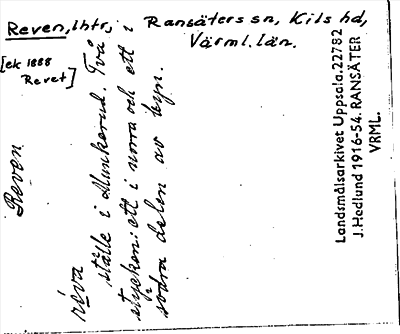 Reven, lhtr, Ransäters sn, Kils hd,
Värml. län.
[ek 1888
Revet]
Reven
riva
ställe i Munkerud. Två
stycken: ett i norra och ett i
södra delen av byn.
Landsmålsarkivet Uppsala. 22782
J. Hedlund 1916-54. RANSÄTER
VRML.